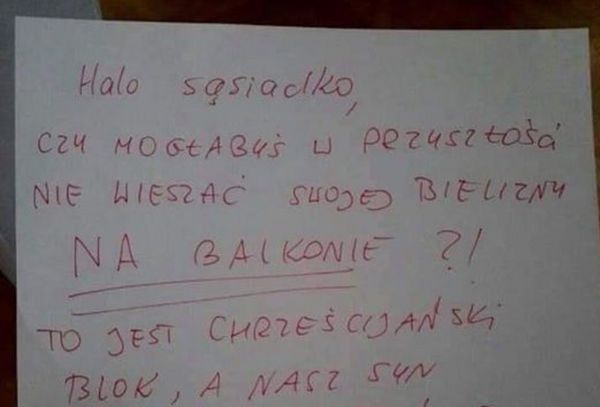 Halo sąsiadko,
CZY MOGŁABYŚ W PRZYSZŁOŚĆ
NIE WIESZAĆ SWOJEJ BIELIZNY
NA BALKONIE ?!
TO JEST CHRZEŚCIJAŃSKI
BLOK, A NASZ SYN